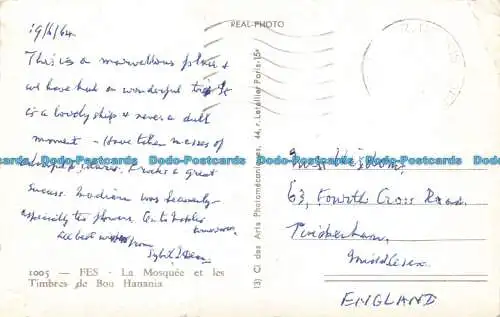 19/6/64
REAL-PHOTO
This is a marvellous place &
we have had a wonderful trip It
is a lovely ship & never a dull
moment - Have taken masses of
Dodo-Postcards Dodo-Postcards Dodo-Postcards Dodo-Postcards Dodo-Postcards
great
success. Madeira was heavenly
especially the flowers.
tomorrow.
All best wishes from
Sybil
1005 — FES - La Mosquée et les
Timbres de Bou Hanania
13) CI des Arts Photomécaniques, 44, r. Letellier Paris-15e
Miss
63, Fourth Cross Road,
Twickenham,
Middlesex.
ENGLAND